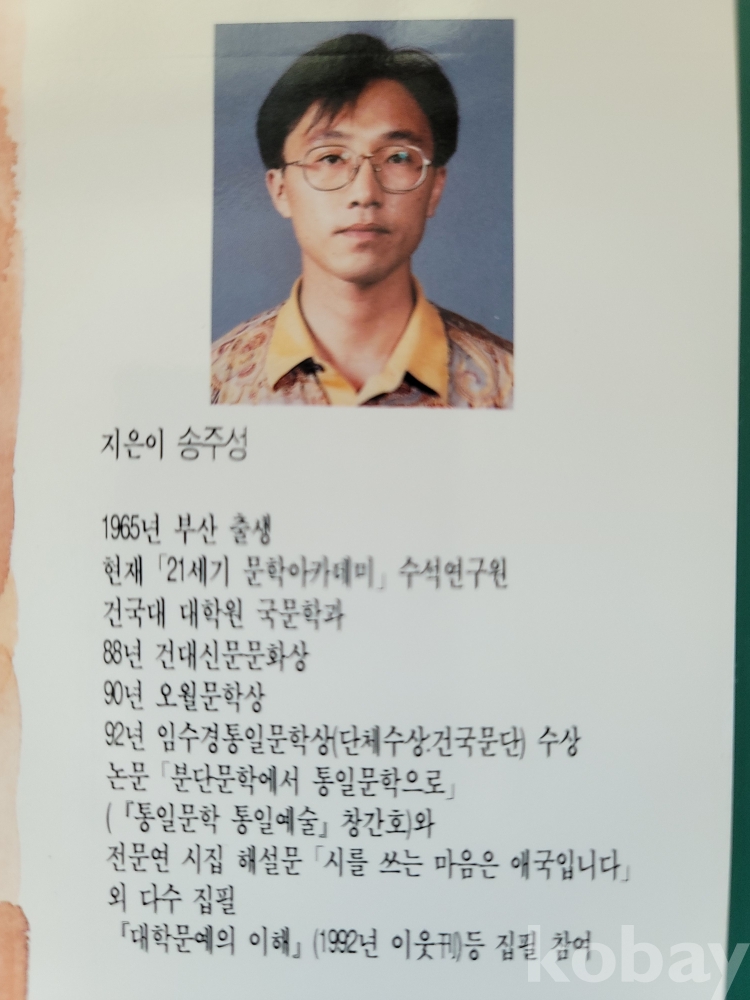 지은이 송주성
1965년 부산 출생
현재 「21세기 문학아카데미」 수석연구원
건국대 대학원 국문학과
88년 건대신문문화상
90년 오월문학상
92년 임수경통일문학상(단체수상:건국문단) 수상
논문「분단문학에서 통일문학으로」
(『통일문학 통일예술』 창간호)와
전문연 시집 해설문「시를 쓰는 마음은 애국입니다」
외 다수 집필
『대학문예의 이해』(1992년 이웃刊)등 집필 참여
kobay